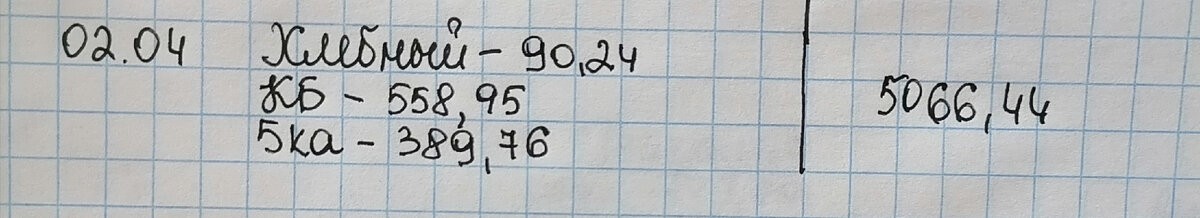 02.04 Хлебный - 90,24
КБ - 558,95
5ка - 389,76
5066,44